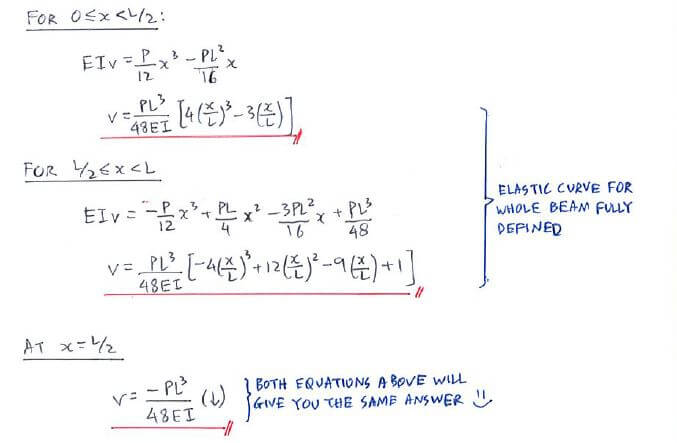 FOR 0≤x<L/2:
EIv = P/12 x³ - PL²/16 x
v = PL³/48EI [4(x/L)³ - 3(x/L)]
FOR L/2≤x<L
EIv = -P/12 x³ + PL/4 x² - 3PL²/16 x + PL³/48
v = PL³/48EI [-4(x/L)³ + 12(x/L)² - 9(x/L) + 1]
ELASTIC CURVE FOR
WHOLE BEAM FULLY
DEFINED
AT x = L/2
v = -PL³/48EI (↓)
BOTH EQUATIONS ABOVE WILL
GIVE YOU THE SAME ANSWER